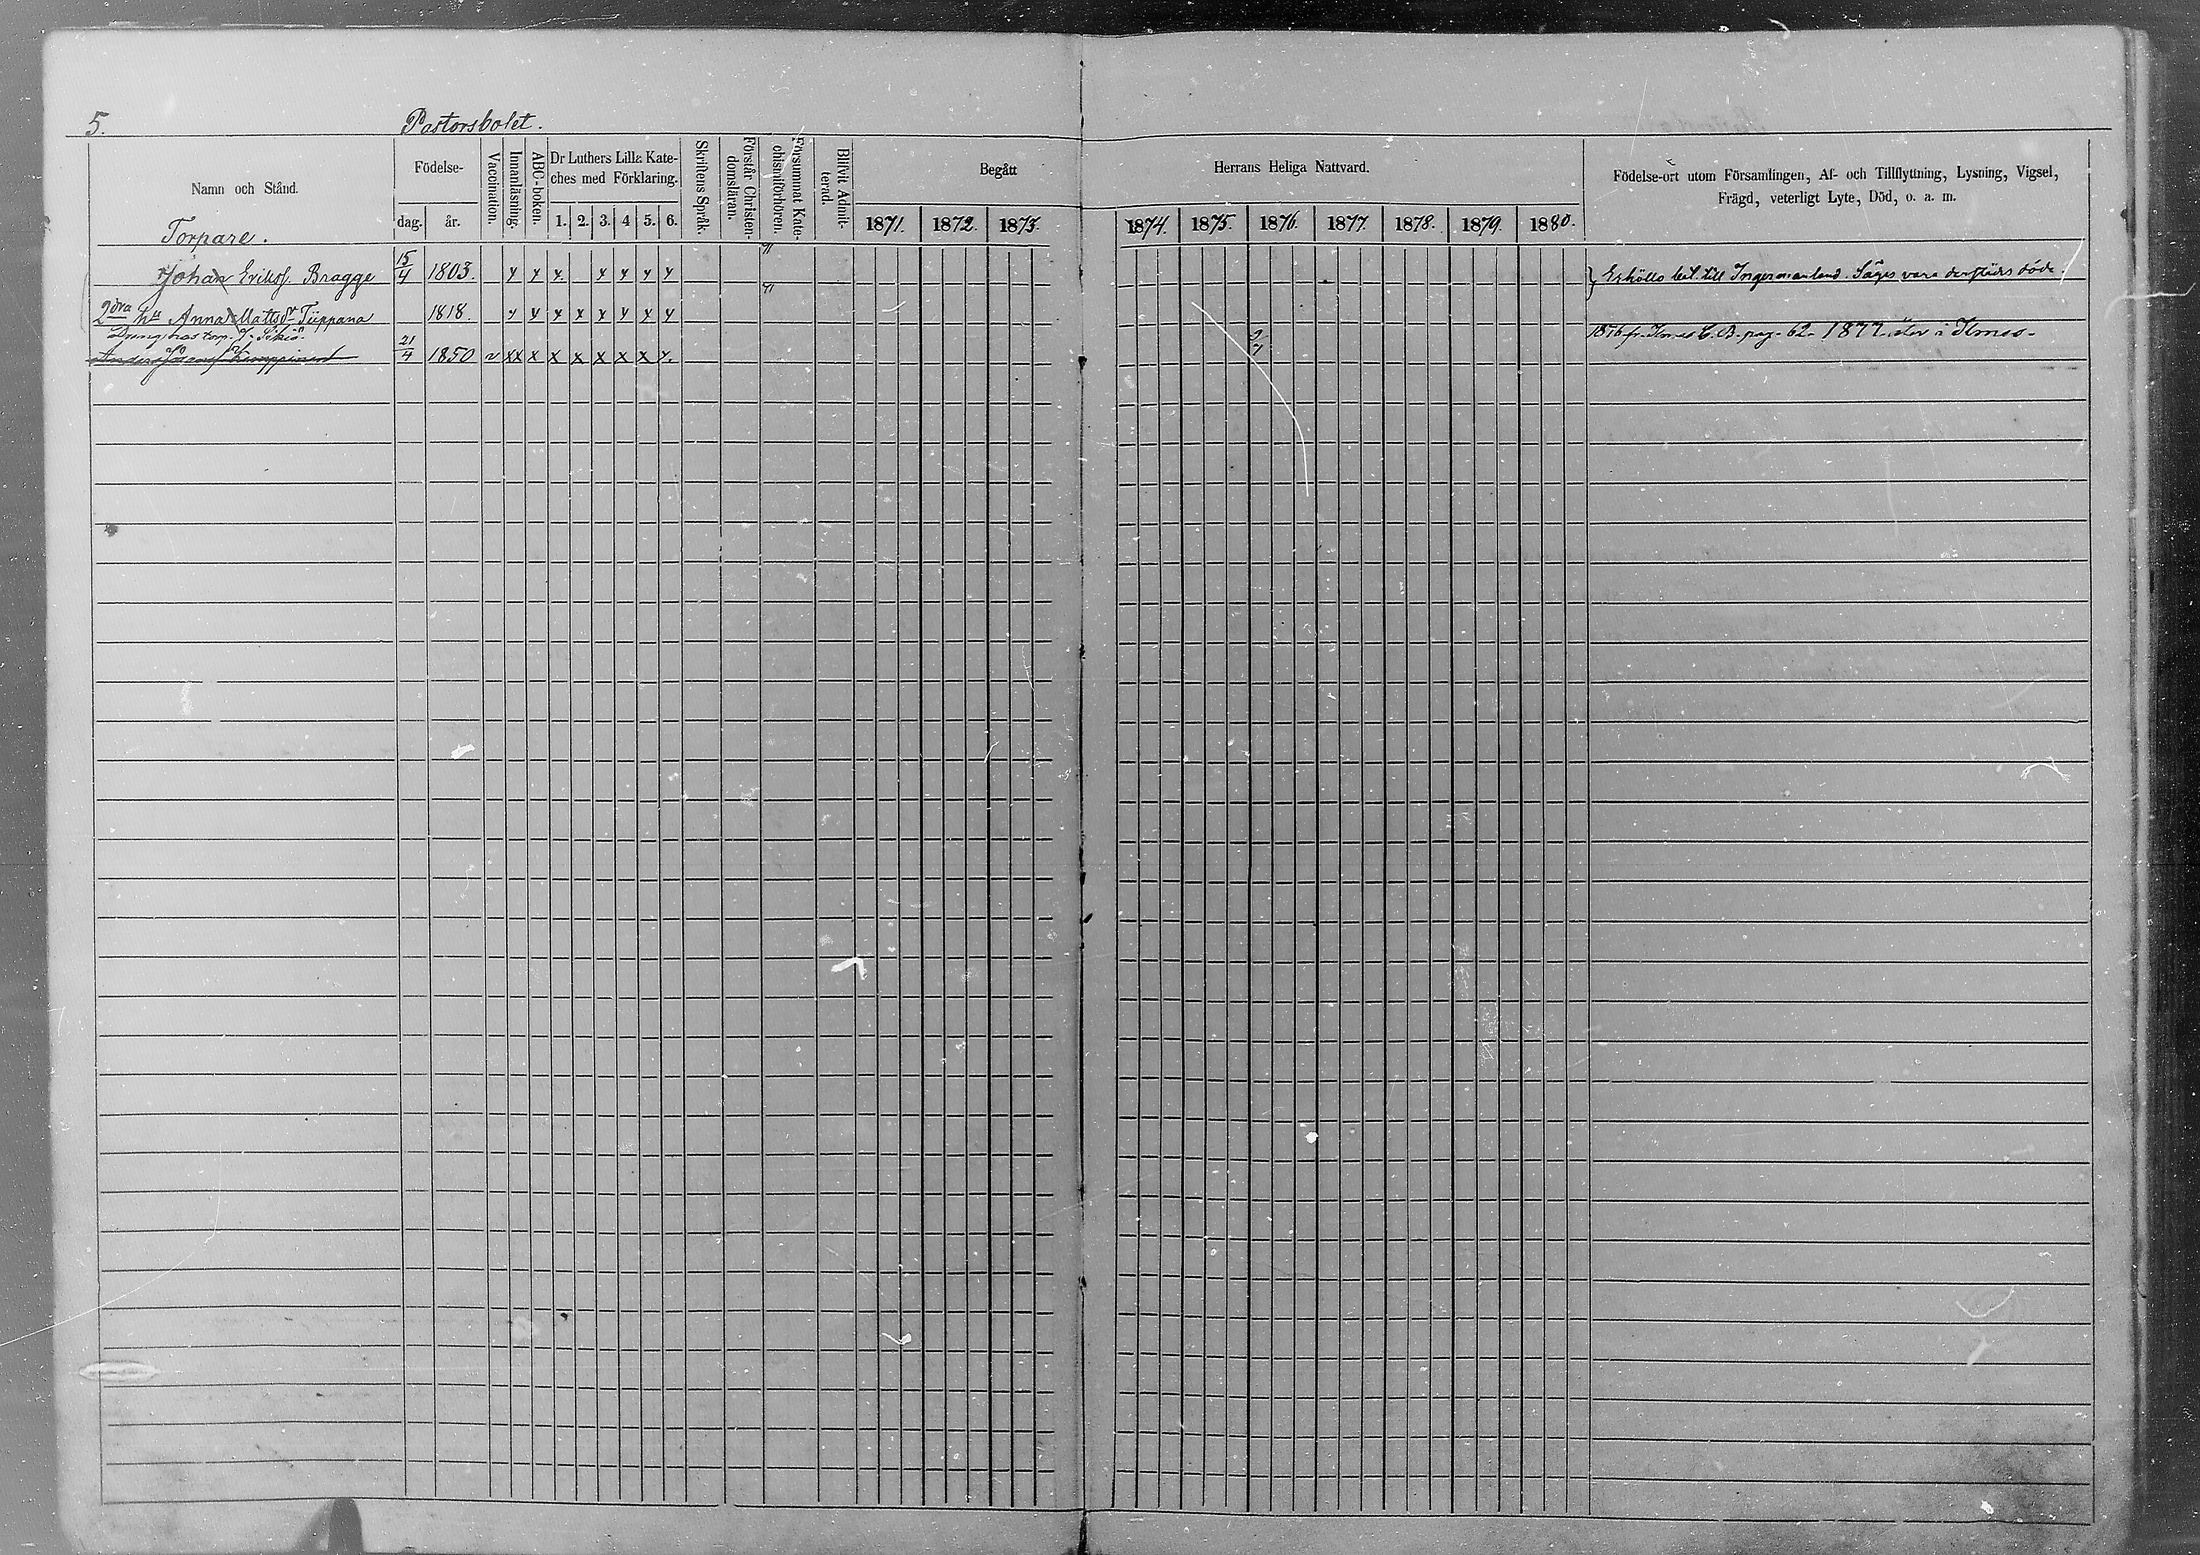 5. Pastorsbolet.
Namn och Stånd.
Födelse-
dag. år.
Vaccination.
Innanläsning.
ABC-boken.
Dr Luthers Lilla Kate-
ches med Förklaring.
1. 2. 3. 4 5. 6.
Skriftens Språk.
Förstår Christen-
domsläran.
Försummat Kate-
chismiförhören.
Blifvit Admit-
terad.
Begått Herrans Heliga Nattvard.
1871. 1872. 1873. 1874. 1875. 1876. 1877. 1878. 1879. 1880.
Födelse-ort utom Församlingen, Af- och Tillflyttning, Lysning, Vigsel,
Frägd, veterligt Lyte, Död, o. a. m.
Torpare.
Johan Erikss. Bragge 15/4 1803. x x x x x x x Erhöllo bet. till Ingermanland. Säges vara derstädes döde.
2dra hu Anna Mattsdr Tiippana 1818. x x x x x x x x
Dreng hos torp. J.
Anders Kemppinen 21/4 1850 v xx x x x x x x x. 1876 fr. C. B. pag. 62. 1877